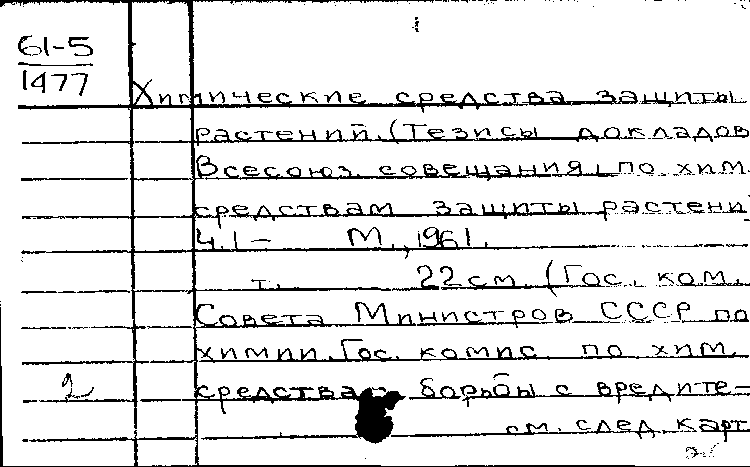 61-5
1477
Химические средства защиты
растений. (Тезисы докладов
Всесоюз. совещания по хим.
средствам защиты растени
Ч.1- М., 1961.
т. 22 см. (Гос. ком.
Совета Министров СССР по
химии. Гос. комис. по хим.
2 средствам борьбы с вредите-
см. след. карт